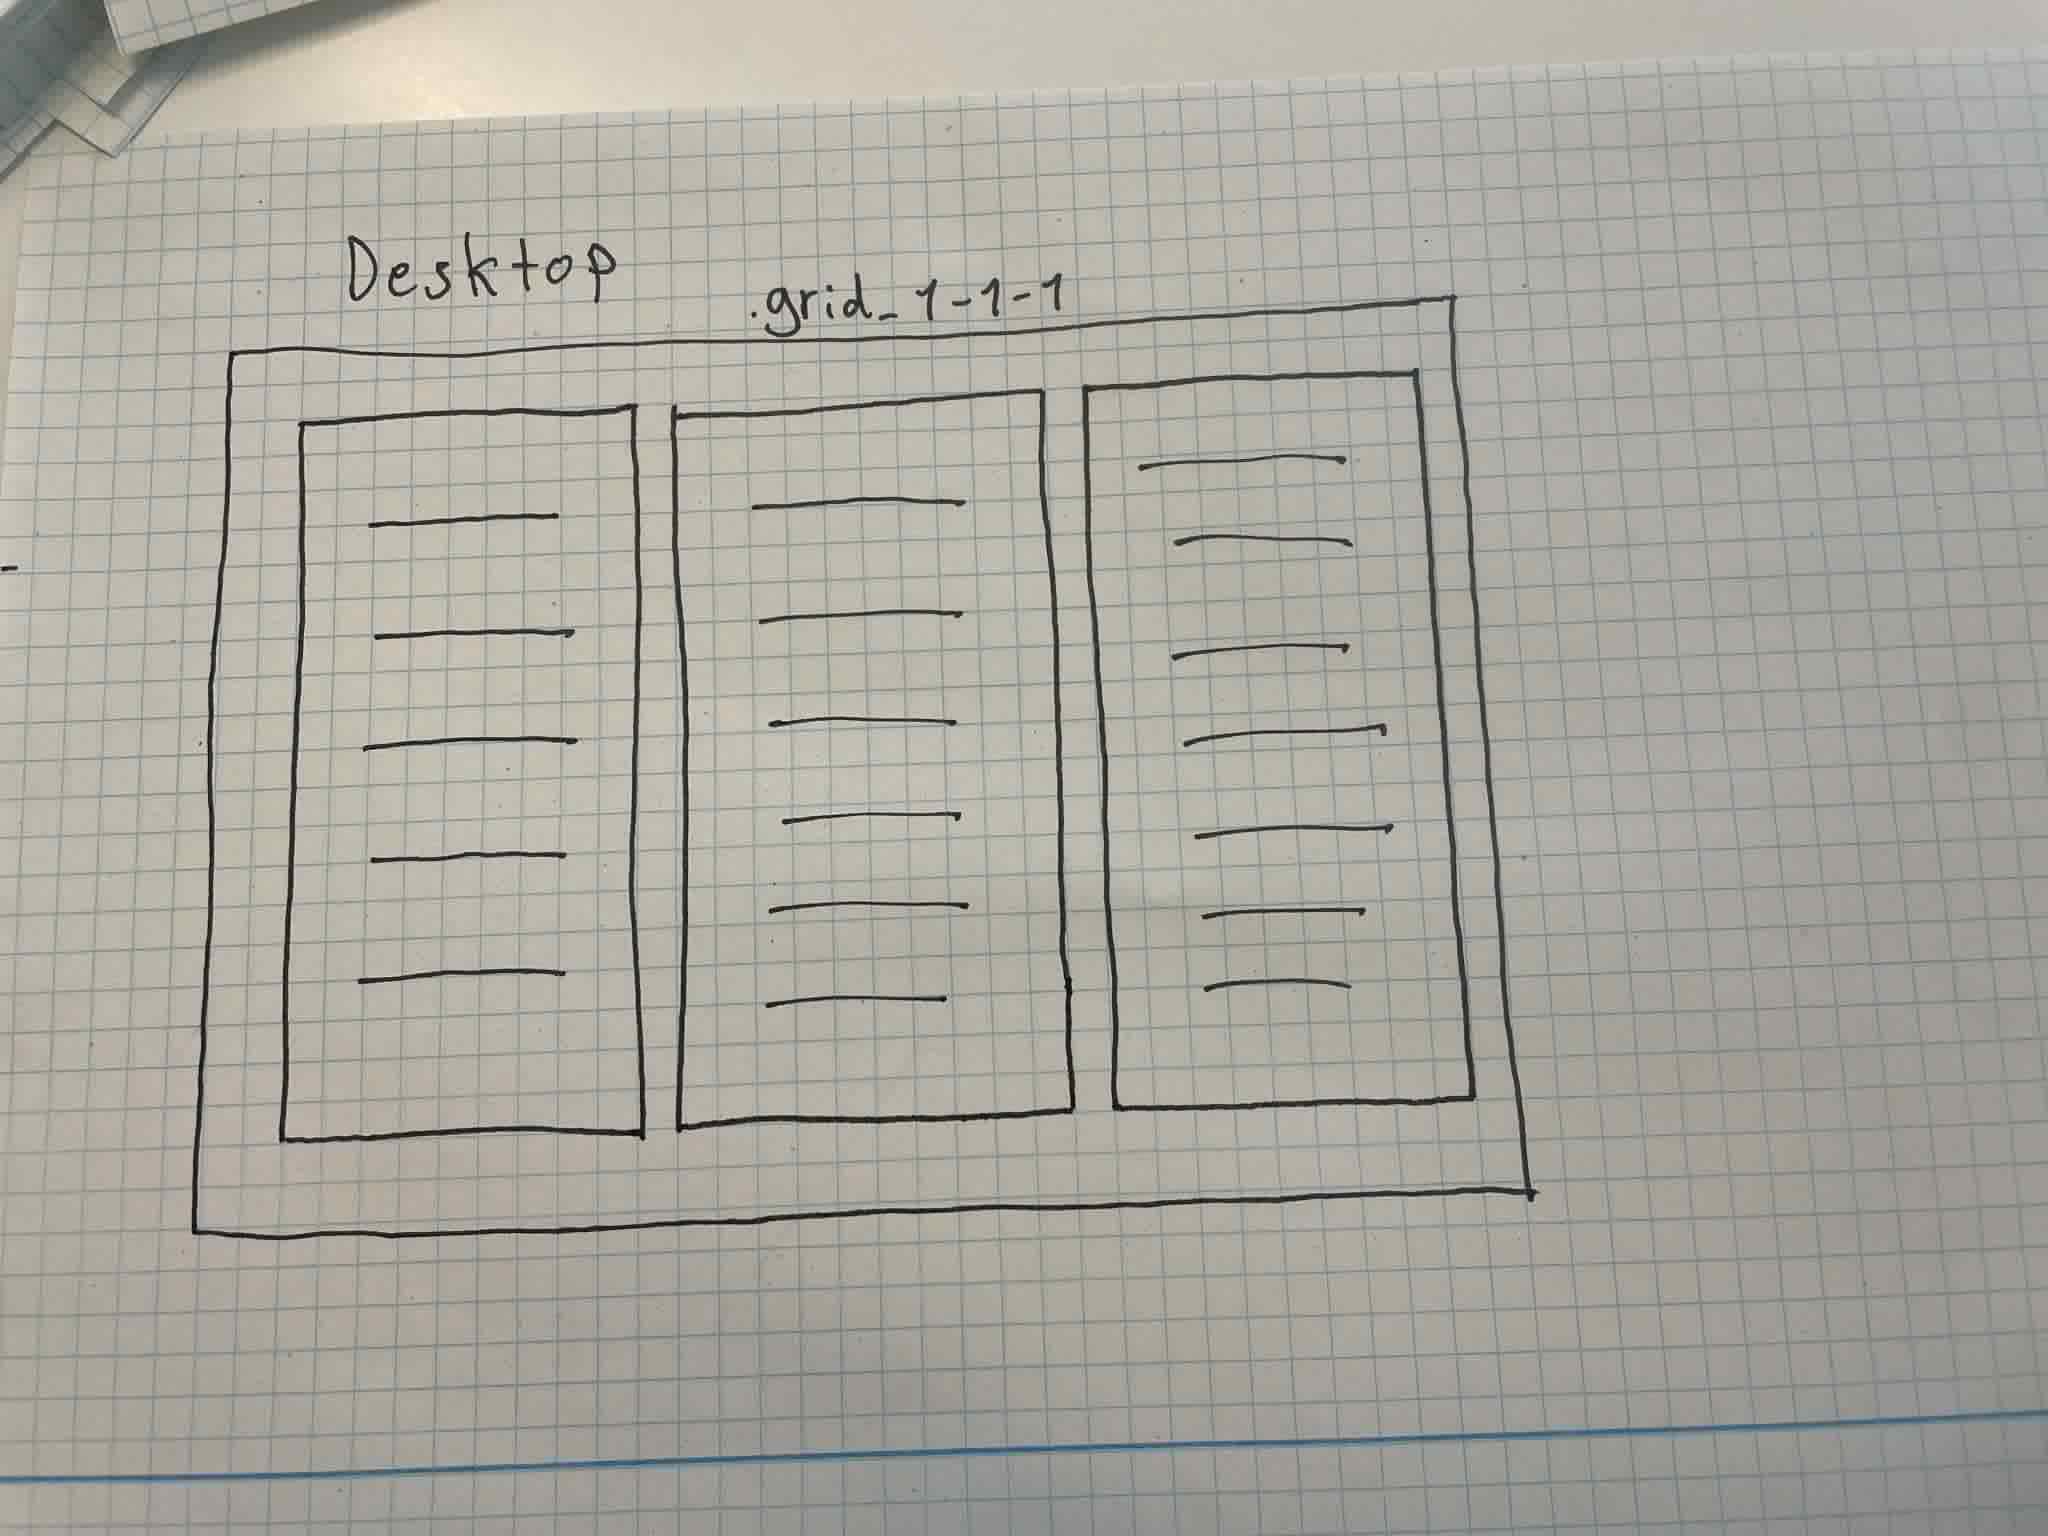 Desktop
.grid_1-1-1